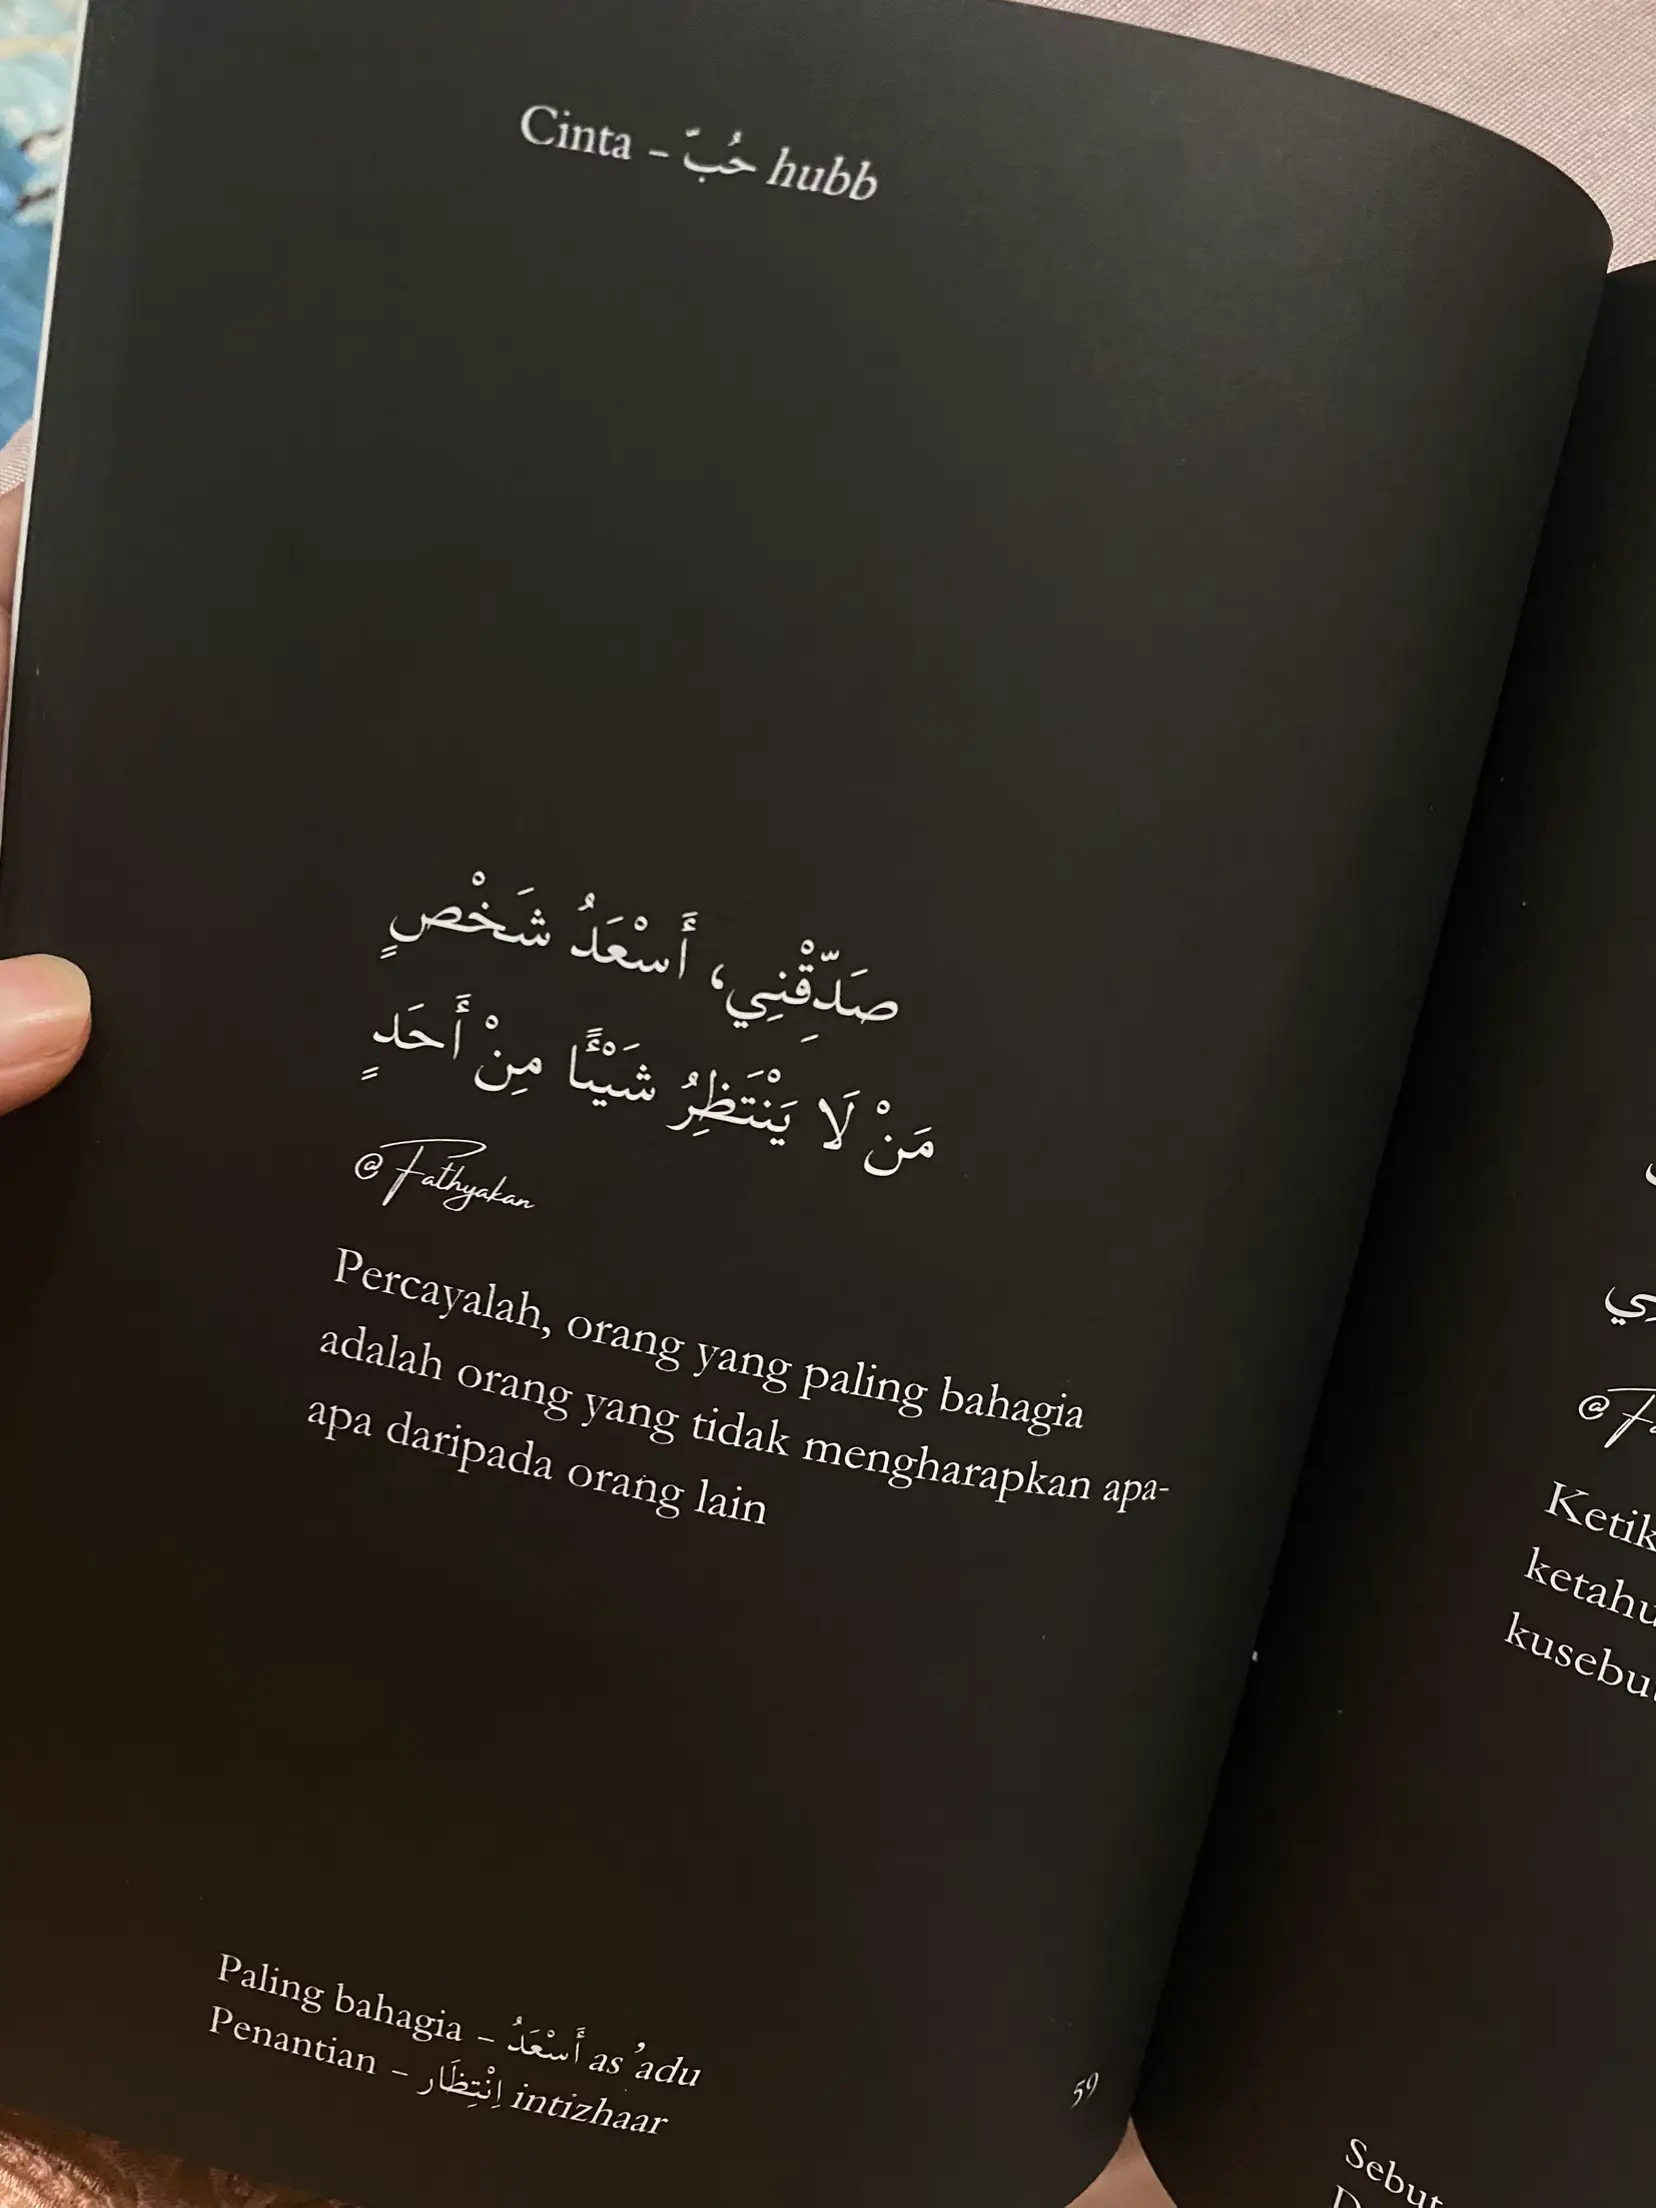 Cinta - حُبّ hubb
صَدِّقْنِي، أَسْعَدُ شَخْصٍ
مَنْ لَا يَنْتَظِرُ شَيْئًا مِنْ أَحَدٍ
@Fathyakan
Percayalah, orang yang paling bahagia
adalah orang yang tidak mengharapkan apa-
apa daripada orang lain
Paling bahagia - أَسْعَدُ as'adu
Penantian - اِنْتِظَار intizhaar
59
Ketik
ketahu
kusebut
Sebut